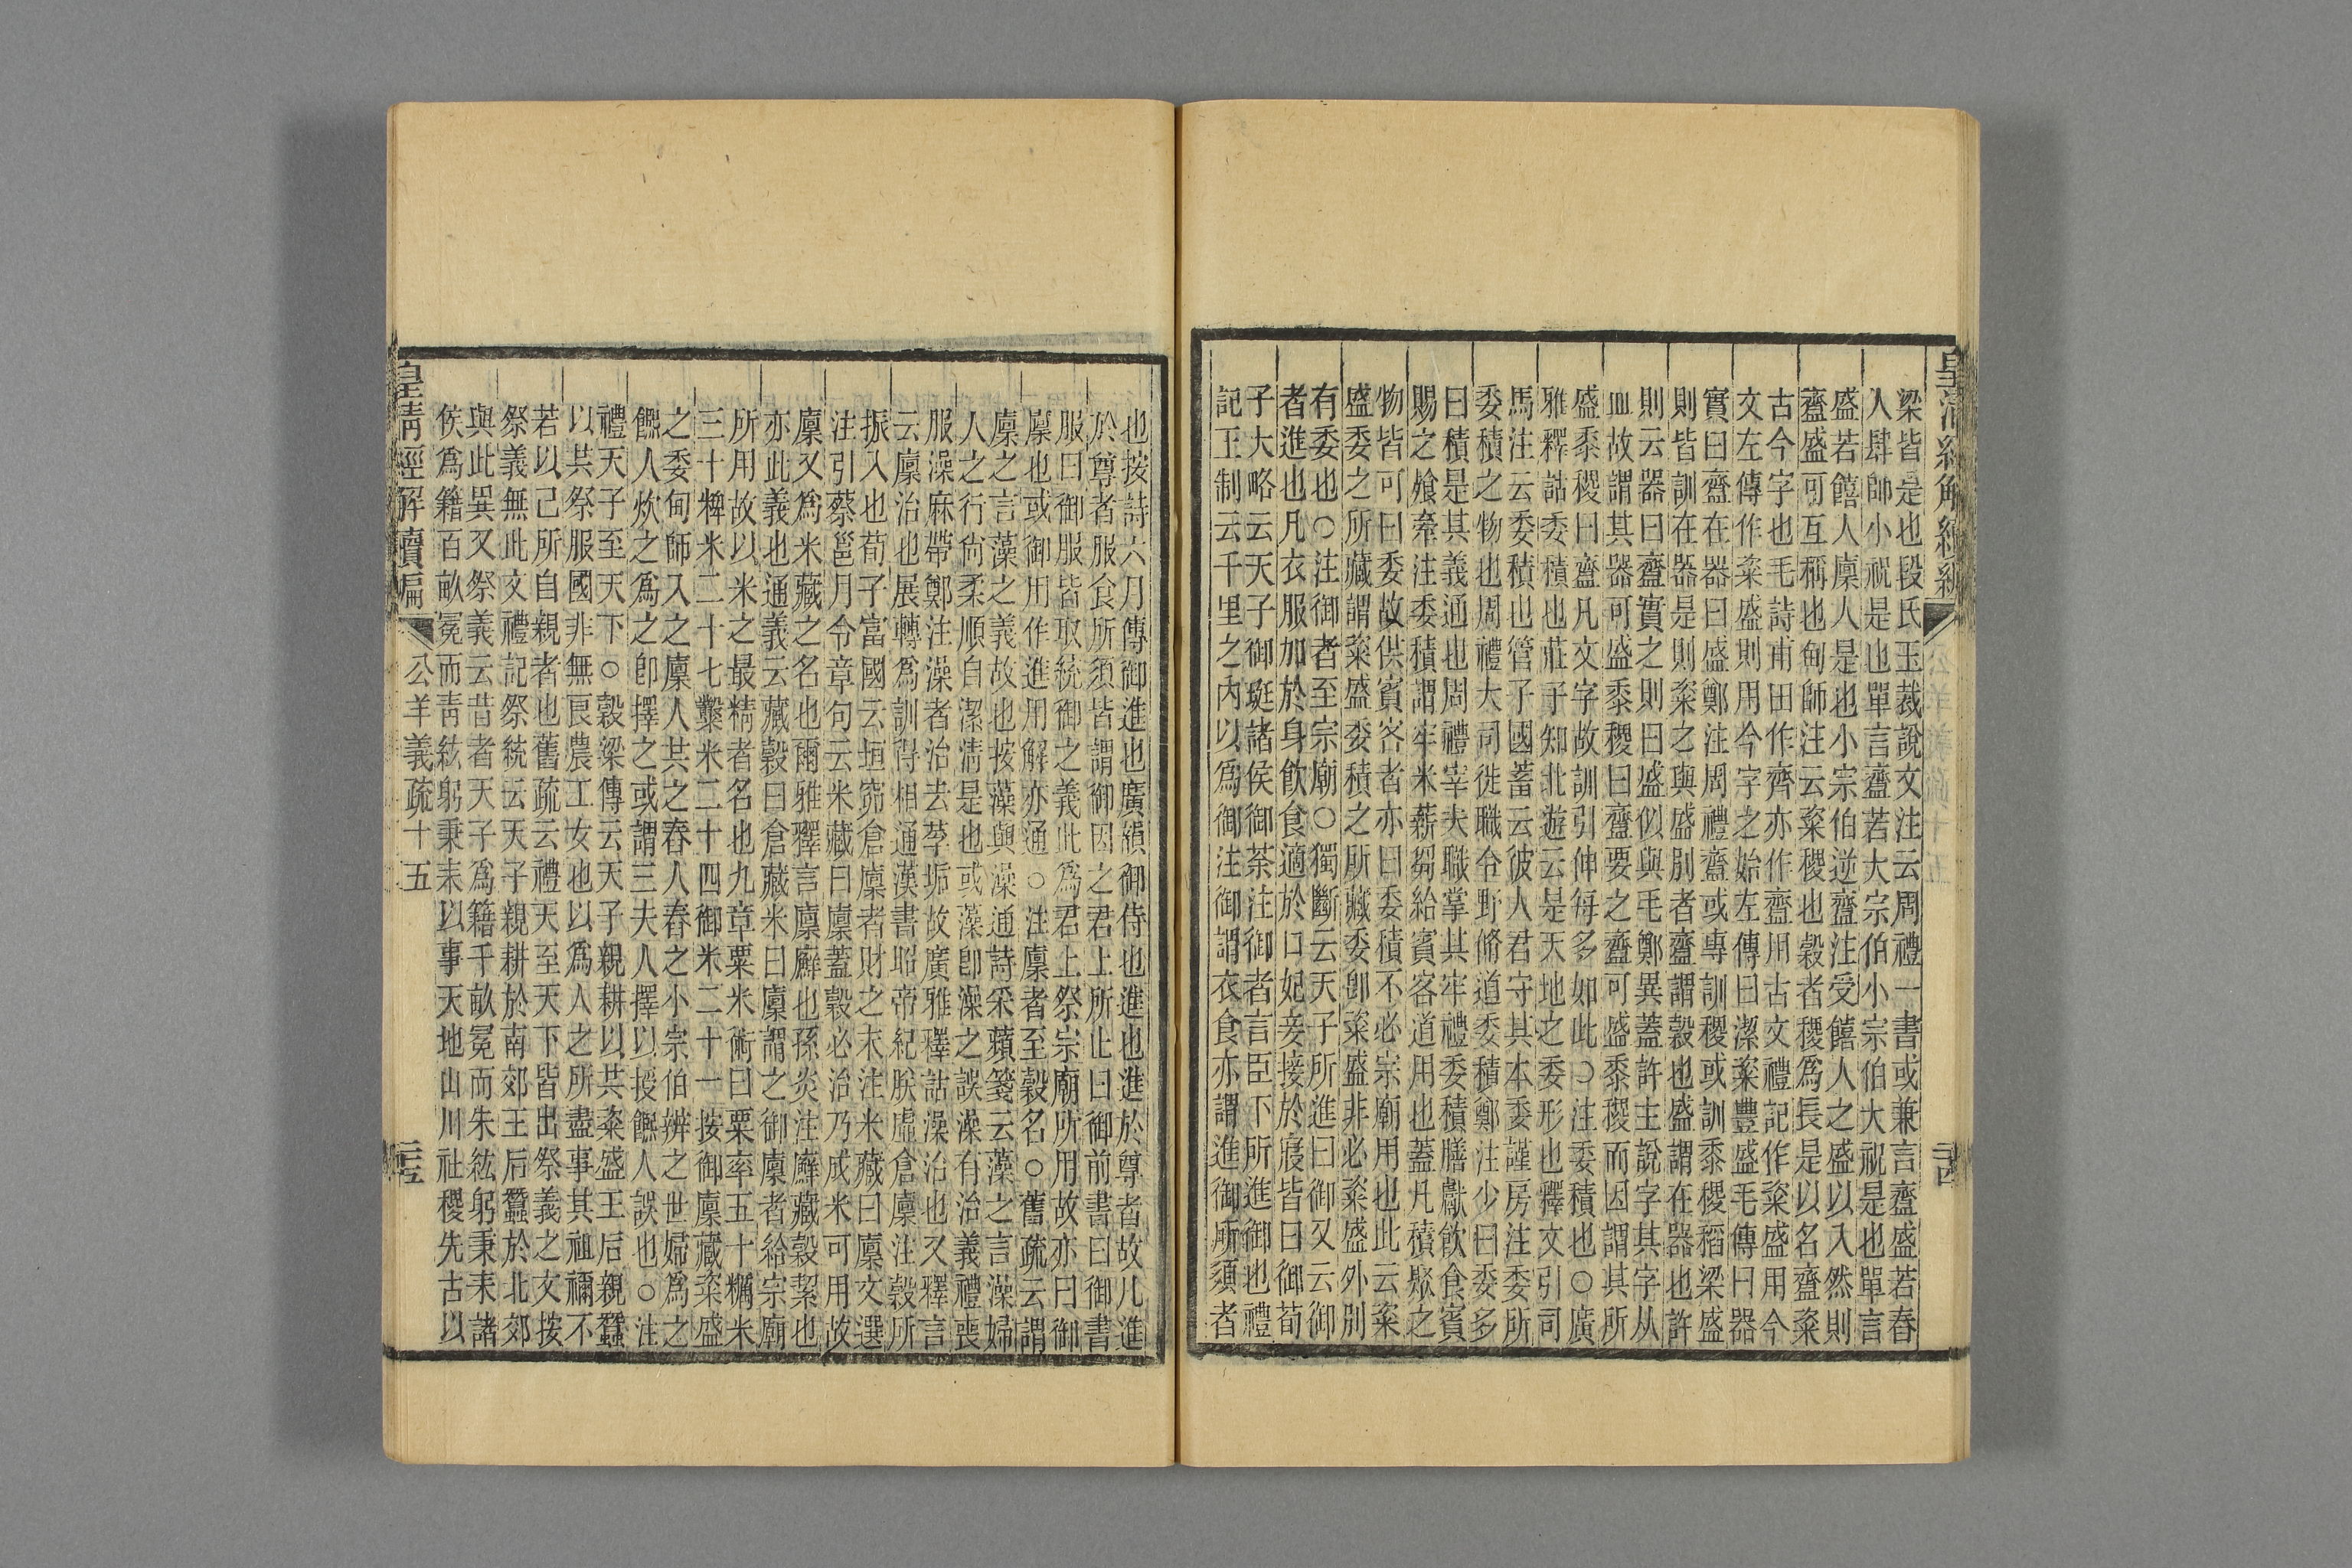 皇清經解續編
梁皆是也段氏玉裁說文注云周禮一書或兼言齍盛若舂
人肆師小祝是也單言齍若大宗伯小宗伯大祝是也單言
盛若饎人廩人是也小宗伯逆齍注受饎人之盛以入然則
齍盛可互稱也甸師注云粢稷也穀者稷爲長是以名齍粢
古今字也毛詩甫田作齊亦作齍用古文禮記作粢盛用今
文左傳作粢盛則用今字之始左傳曰潔粢豐盛毛傳曰器
實曰齍在器曰盛鄭注周禮齍或專訓稷或訓黍稷稻粱盛
則皆訓在器是則粢之與盛別者齍謂穀也盛謂在器也許
則云器曰齍實之則曰盛似與毛鄭異蓋許主說字其字从
皿故謂其器可盛黍稷曰齍要之齍可盛黍稷而因謂其所
盛黍稷曰齍凡文字故訓引伸每多如此○注委積也○廣
雅釋詁委積也莊子知北遊云是天地之委形也釋文引司
馬注云委積也管子國蓄云彼人君守其本委謹房注委所
委積之物也周禮大司徒職令野脩道委積鄭注少曰委多
曰積是其義通也周禮宰夫職掌其牢禮委積膳獻飲食賓
賜之飧牽注委積謂牢米薪芻給賓客道用也蓋凡積聚之
物皆可曰委故供賓客者亦曰委積不必宗廟用也此云粢
盛委之所藏謂粢盛委積之所藏委卽粢盛非必粢盛外別
有委也○注御者至宗廟○獨斷云天子所進曰御又云御
者進也凡衣服加於身飲食適於口妃妾接於寢皆曰御荀
子大略云天子御珽諸侯御荼注御者言臣下所進御也禮
記王制云千里之內以爲御注御謂衣食亦謂進御所須者
也按詩六月傳御進也廣韻御侍也進也進於尊者故凡進
於尊者服食所須皆謂御因之君上所止曰御前書曰御書
服曰御服皆取統御之義此爲君上祭宗廟所用故亦曰御
廩也或御用作進用解亦通○注廩者至穀名○舊疏云謂
廩之言藻之義故也按藻與澡通詩采蘋箋云藻之言澡婦
人之行尙柔順自潔淸是也或藻卽澡之誤澡有治義禮喪
服澡麻帶鄭注澡者治去莩垢故廣雅釋詁澡治也又釋言
云廩治也展轉爲訓得相通漢書昭帝紀朕虛倉廩注穀所
振入也荀子富國云垣窌倉廩者財之末注米藏曰廩文選
注引蔡邕月令章句云米藏曰廩蓋穀必治乃成米可用故
廩又爲米藏之名也爾雅釋言廩廯也孫炎注廯藏穀絜也
亦此義也通義云藏穀曰倉藏米曰廩謂之御廩者給宗廟
所用故以米之最精者名也九章粟米術曰粟率五十糲米
三十粺米二十七糳米二十四御米二十一按御廩藏粢盛
之委甸師入之廩人共之舂人舂之小宗伯辨之世婦爲之
饎人炊之爲之卽擇之或謂三夫人擇以授饎人誤也○注
禮天子至天下○穀梁傳云天子親耕以共粢盛王后親蠶
以共祭服國非無良農工女也以爲人之所盡事其祖禰不
若以己所自親者也舊疏云禮天至天下皆出祭義之文按
祭義無此文禮記祭統云天子親耕於南郊王后蠶於北郊
與此異又祭義云昔者天子爲籍千畝冕而朱紘躬秉耒諸
侯爲籍百畝冕而靑紘躬秉耒以事天地山川社稷先古以
皇淸經解續編
公羊義疏十五